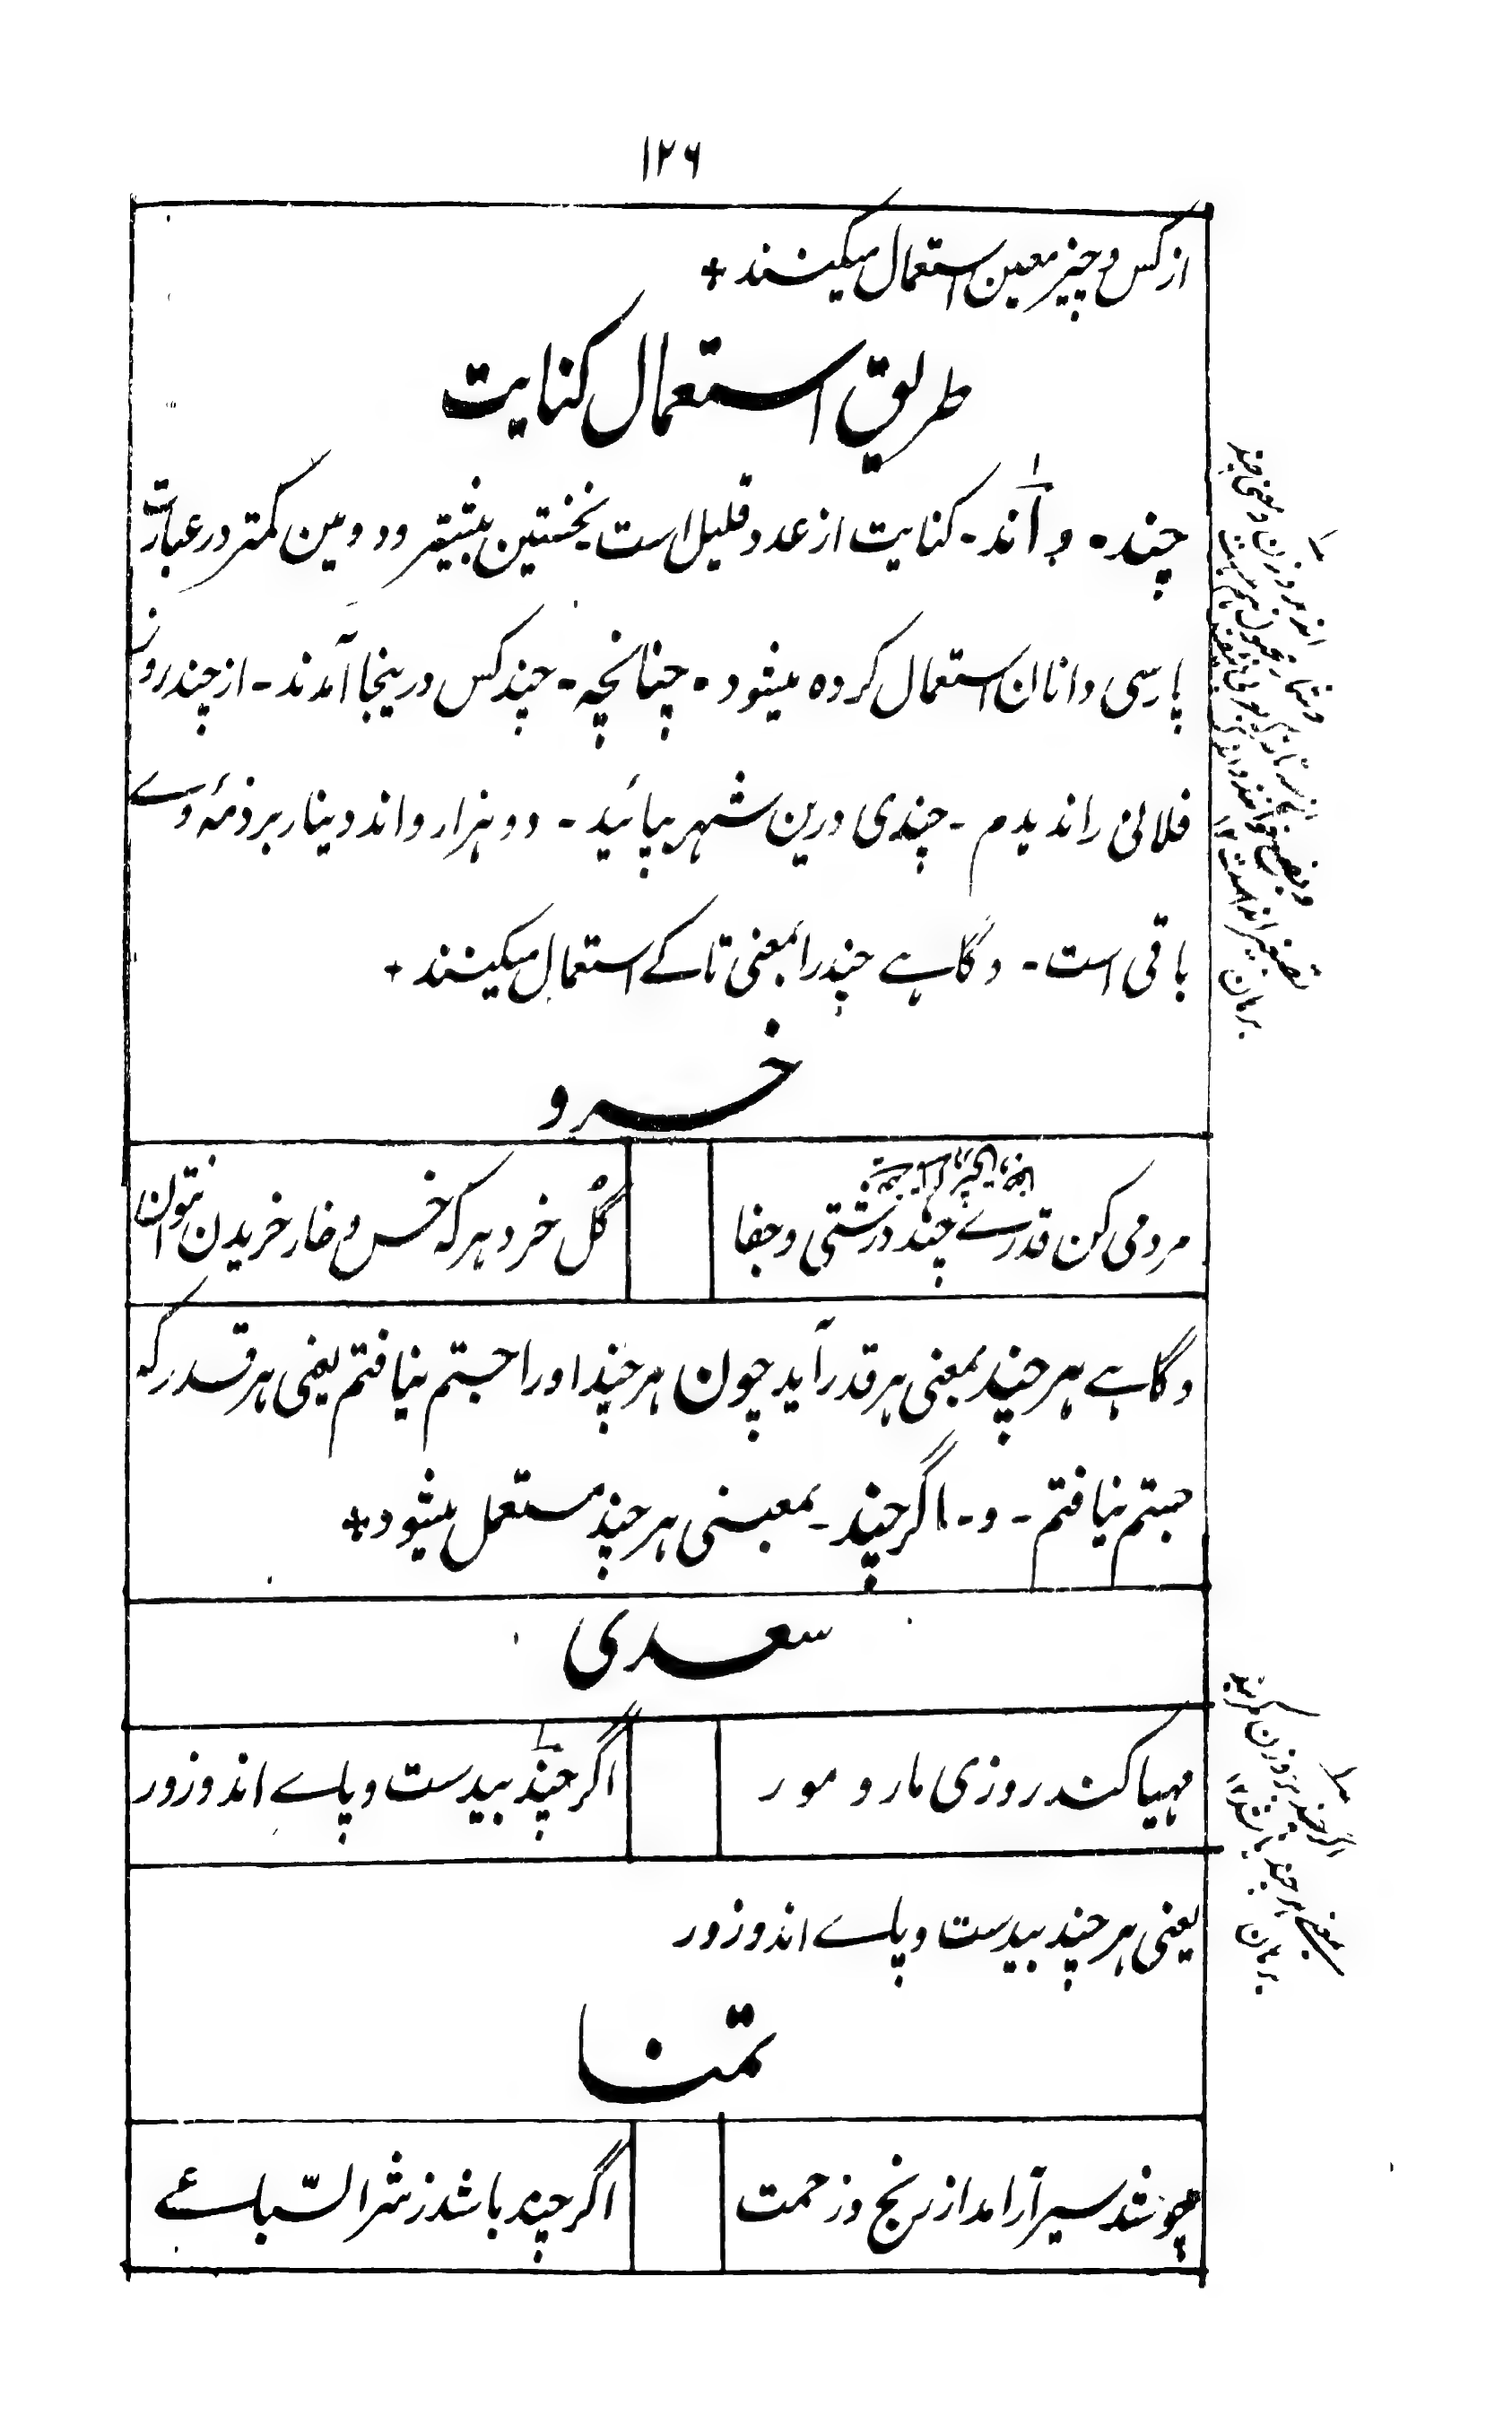 ۱۲۶
از کس و چیز معین استعمال میکنند +
طریق استعمال کنایت
چند - و اَند - کنایت از عدد قلیل است نخستین بیشتر و دومین کمتر در عبارت
پارسی دانان استعمال کرده میشود - چنانچه - چند کس درینجا آمدند - از چند روز
فلانی را ندیدم - چندی درین شهر بپائید - دو هزار و اند دینار بر ذمهٔ وے
باقی است - و گاہے چند را بمعنی تا کے استعمال میکنند +
خسرو
مردمی کن قدرے چند درشتی و جفا
گل خرد هر که خس و خار خریدن نتوان
و گاہے هر چند بمعنی هر قدر آید چون هر چند او را جستم نیافتم یعنی هر قدر که
جستم نیافتم - و - اگر چند - بمعنی هر چند مستعمل میشود +
سعدی
مهیا کند روزی مار و مور
اگر چند بیدست و پاے اند و زور
یعنی هر چند بیدست و پاے اند و زور
تمنا
چو شد سیر آرامد از رنج و زحمت
اگر چند باشد ز شر السّباعے
اند بر وزن
برهان
اگر چند بر وزن
بمعنی هر چند باشد ۱۲
برهان